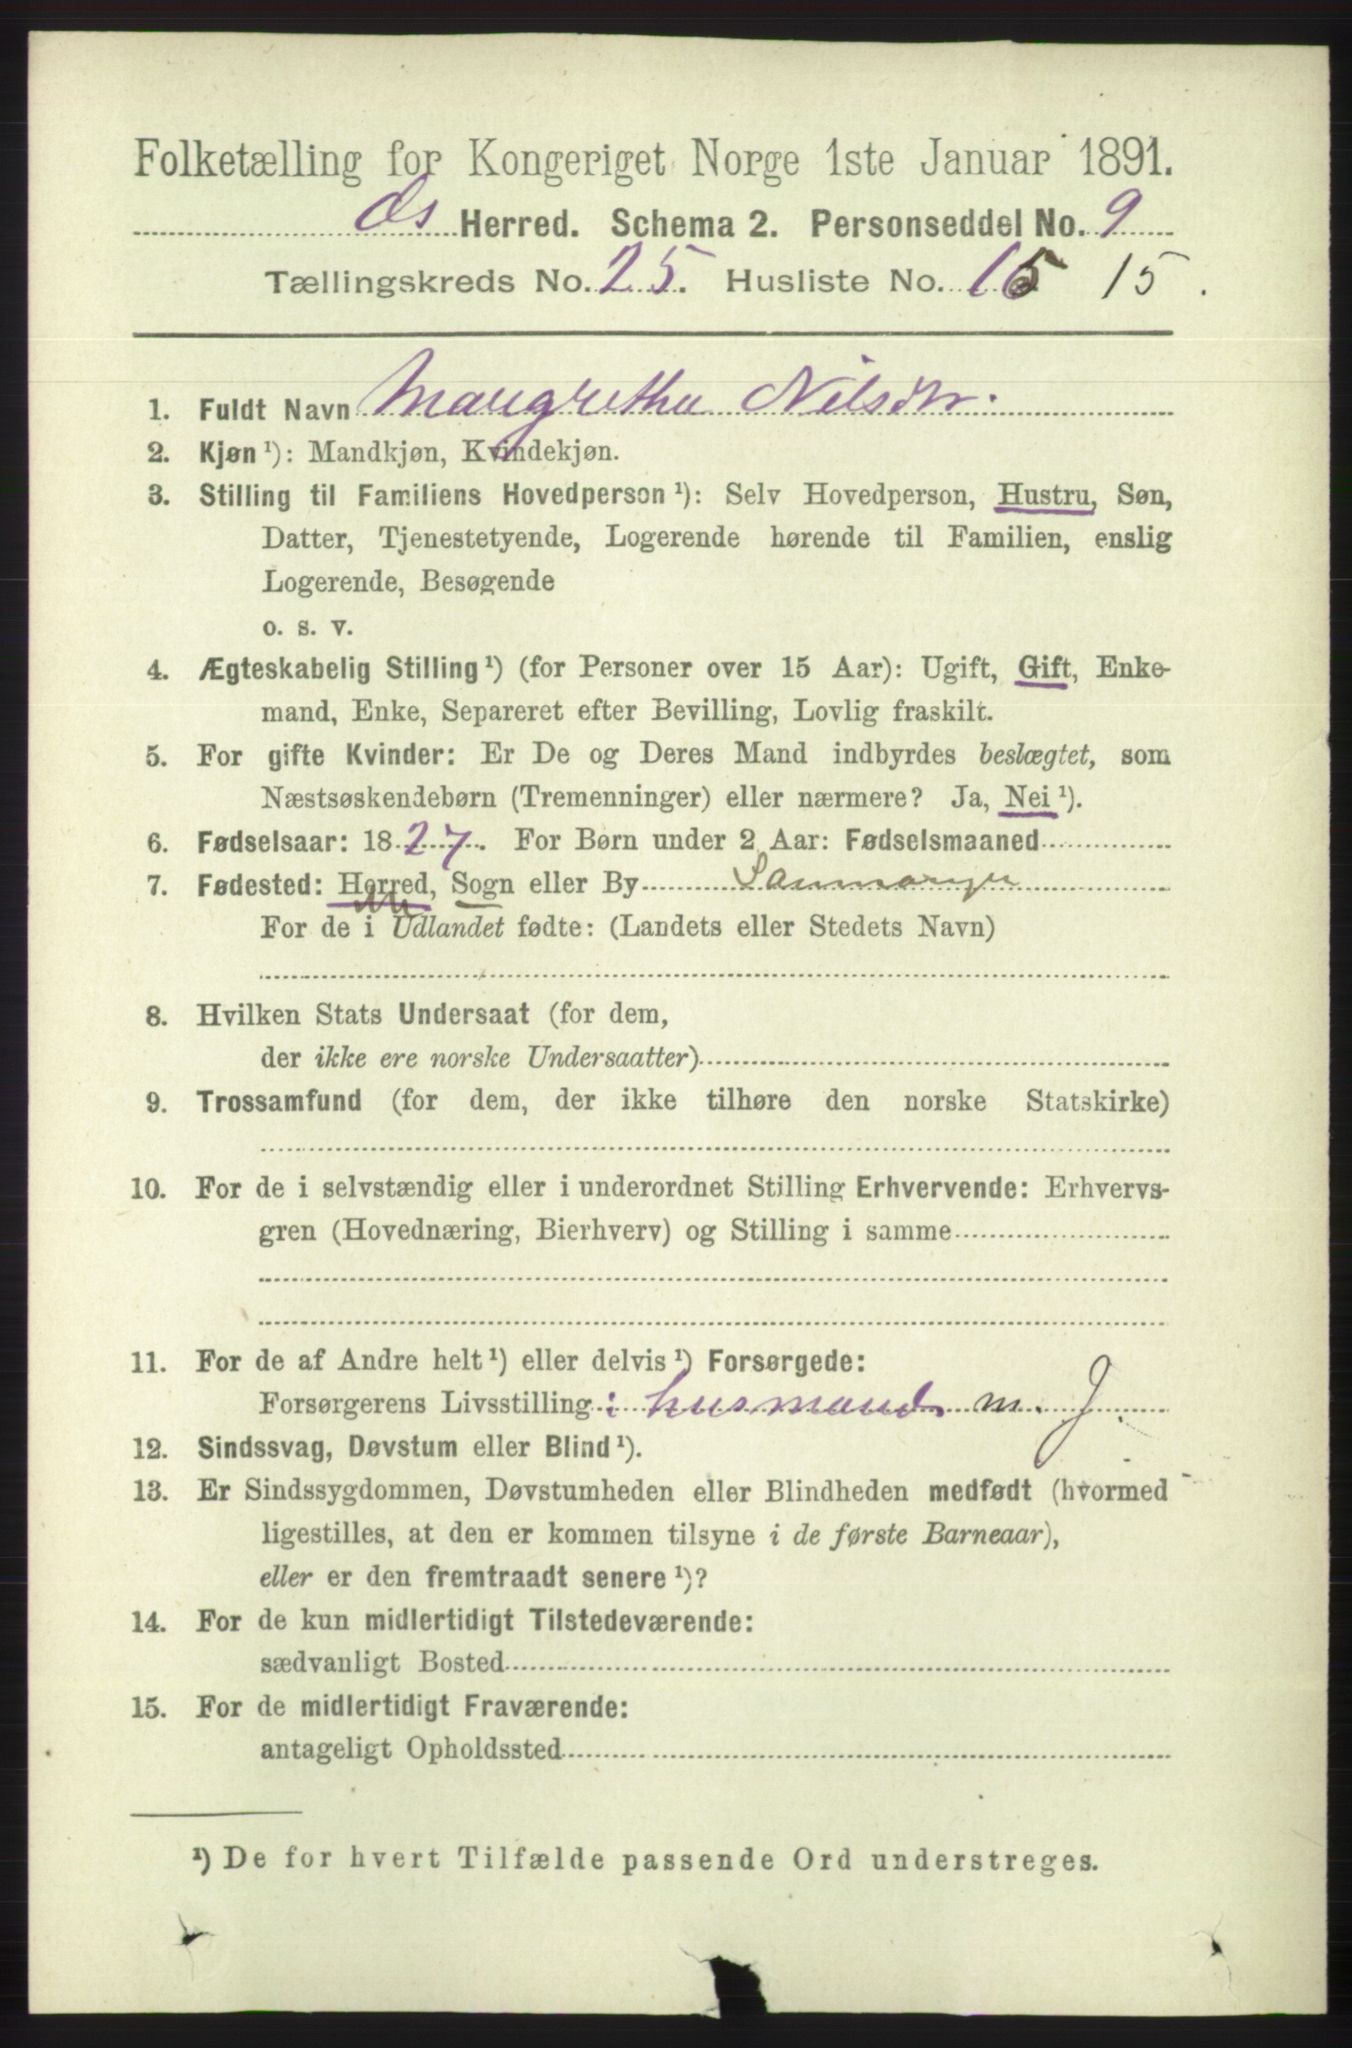 Folketælling for Kongeriget Norge 1ste Januar 1891.
Os Herred. Schema 2. Personseddel No. 9
Tællingskreds No. 25. Husliste No. 15 15.
1. Fuldt Navn Margretha Nilsdtr.
2. Kjøn ¹): Mandkjøn, Kvindekjøn.
3. Stilling til Familiens Hovedperson ¹): Selv Hovedperson, Hustru, Søn,
Datter, Tjenestetyende, Logerende hørende til Familien, enslig
Logerende, Besøgende
o. s. v.
4. Ægteskabelig Stilling ¹) (for Personer over 15 Aar): Ugift, Gift, Enke-
mand, Enke, Separeret efter Bevilling, Lovlig fraskilt.
5. For gifte Kvinder: Er De og Deres Mand indbyrdes beslægtet, som
Næstsøskendebørn (Tremenninger) eller nærmere? Ja, Nei ¹).
6. Fødselsaar: 1827. For Børn under 2 Aar: Fødselsmaaned
7. Fødested: Herred, Sogn eller By
For de i Udlandet fødte: (Landets eller Stedets Navn)
8. Hvilken Stats Undersaat (for dem,
der ikke ere norske Undersaatter)
9. Trossamfund (for dem, der ikke tilhøre den norske Statskirke)
10. For de i selvstændig eller i underordnet Stilling Erhvervende: Erhvervs-
gren (Hovednæring, Bierhverv) og Stilling i samme
11. For de af Andre helt ¹) eller delvis ¹) Forsørgede:
Forsørgerens Livsstilling: husmand m. J.
12. Sindssvag, Døvstum eller Blind ¹).
13. Er Sindssygdommen, Døvstumheden eller Blindheden medfødt (hvormed
ligestilles, at den er kommen tilsyne i de første Barneaar),
eller er den fremtraadt senere ¹)?
14. For de kun midlertidigt Tilstedeværende:
sædvanligt Bosted
15. For de midlertidigt Fraværende:
antageligt Opholdssted
¹) De for hvert Tilfælde passende Ord understreges.